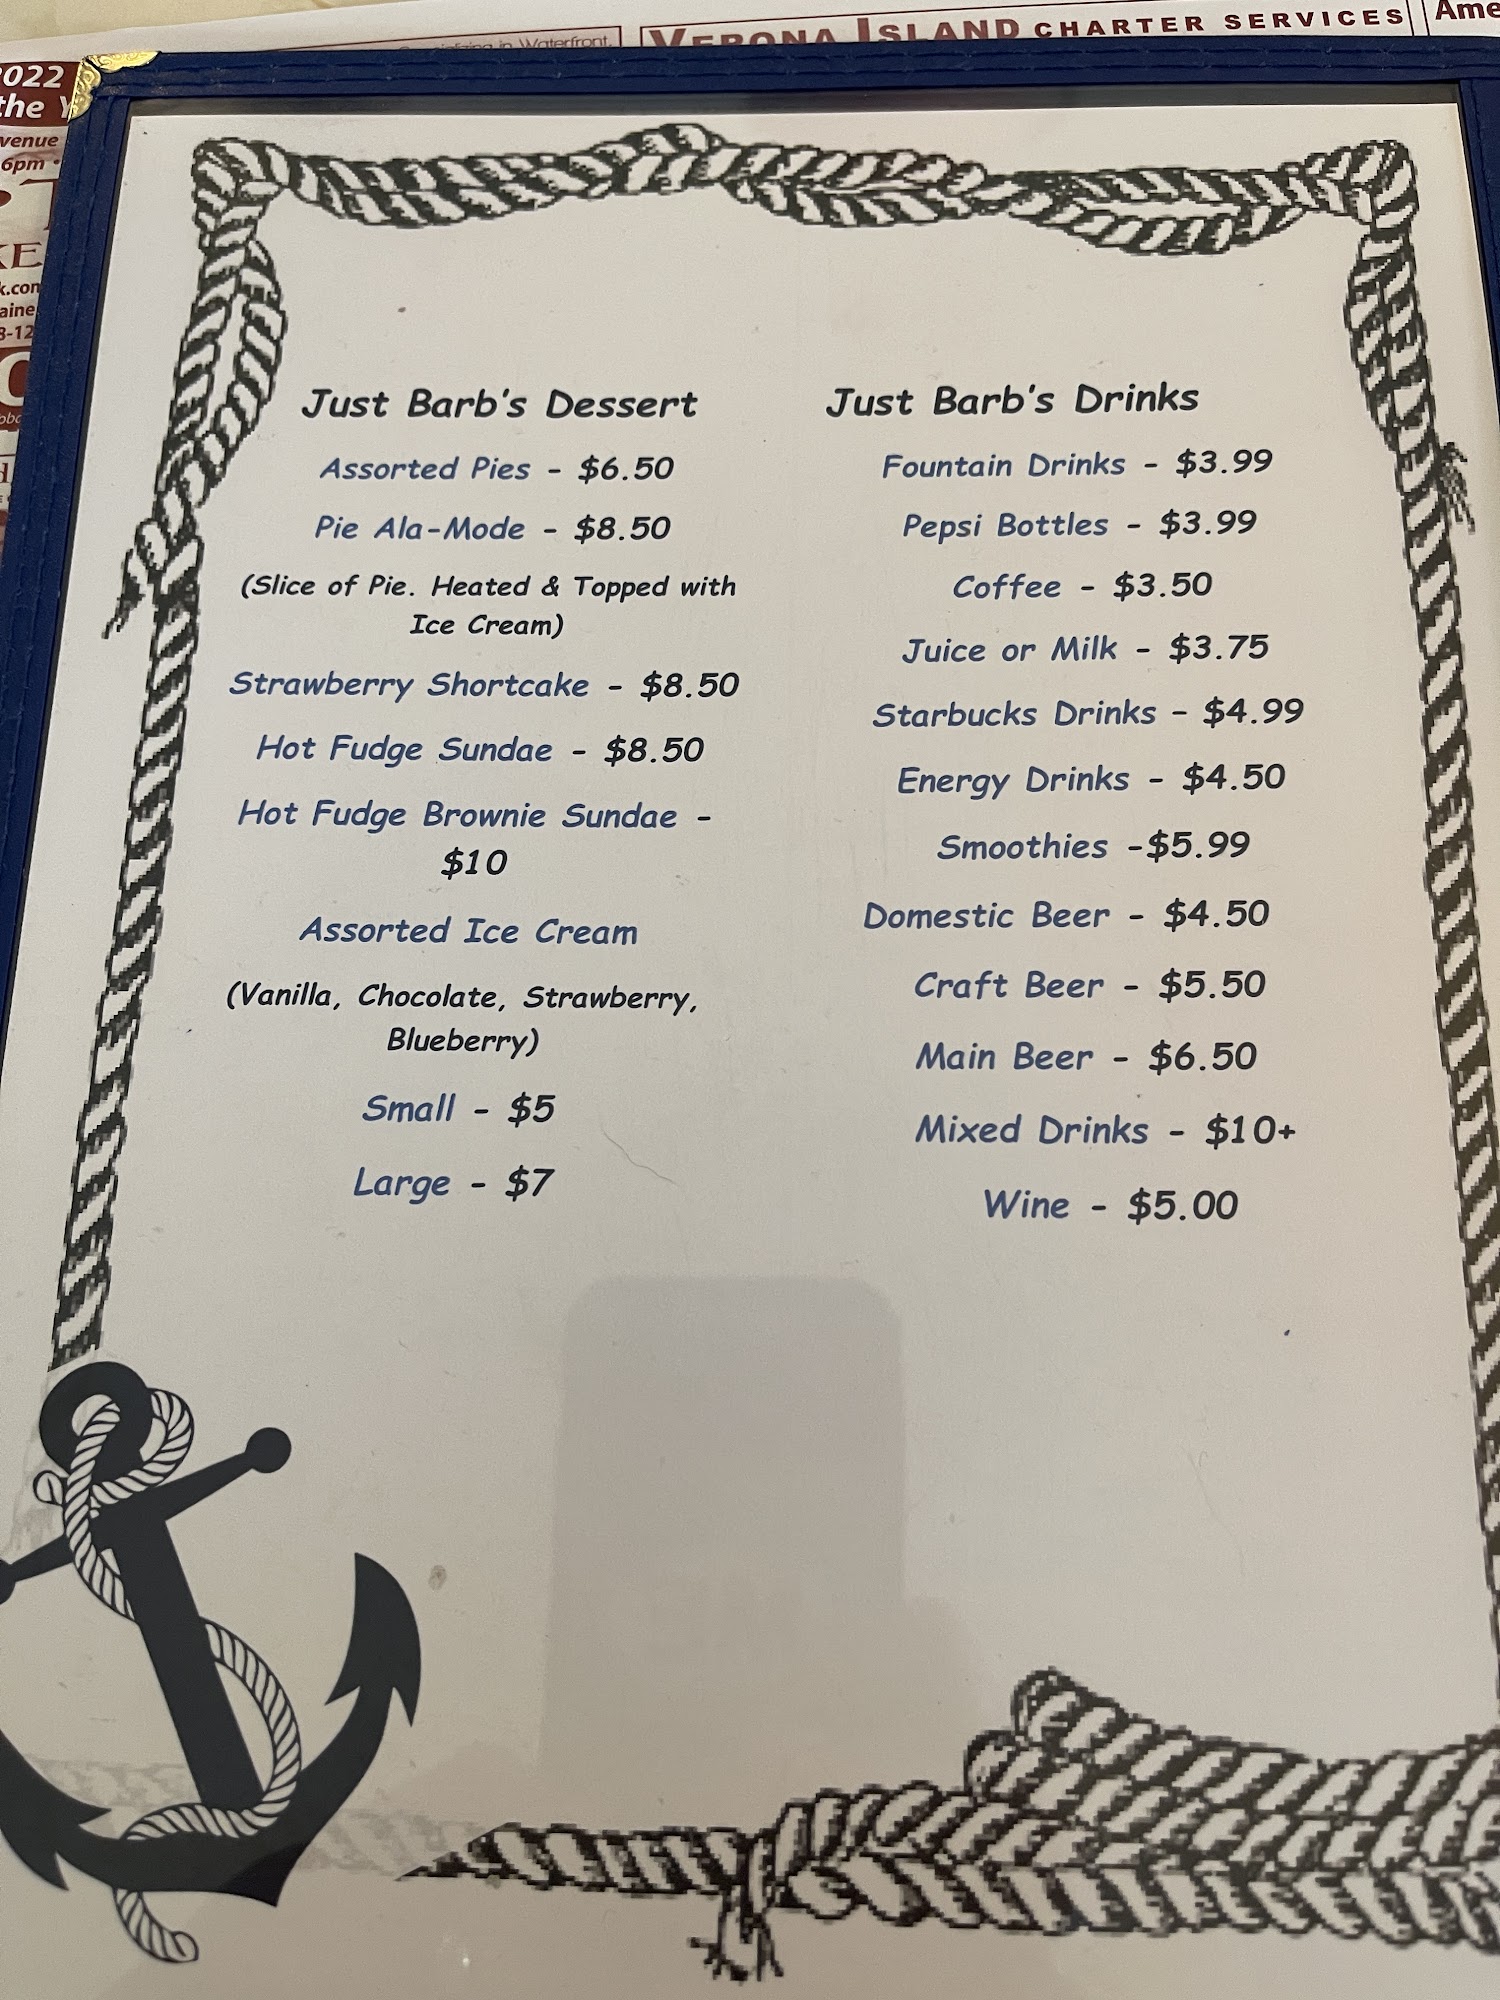 Specializing in Waterfront,
VERONA ISLAND CHARTER SERVICES
Ame
2022
the Y
venue
6pm •
KE
k.com
aine
8-12
Just Barb's Dessert
Assorted Pies - $6.50
Pie Ala-Mode - $8.50
(Slice of Pie. Heated & Topped with
Ice Cream)
Strawberry Shortcake - $8.50
Hot Fudge Sundae - $8.50
Hot Fudge Brownie Sundae -
$10
Assorted Ice Cream
(Vanilla, Chocolate, Strawberry,
Blueberry)
Small - $5
Large - $7
Just Barb's Drinks
Fountain Drinks - $3.99
Pepsi Bottles - $3.99
Coffee - $3.50
Juice or Milk - $3.75
Starbucks Drinks - $4.99
Energy Drinks - $4.50
Smoothies -$5.99
Domestic Beer - $4.50
Craft Beer - $5.50
Main Beer - $6.50
Mixed Drinks - $10+
Wine - $5.00